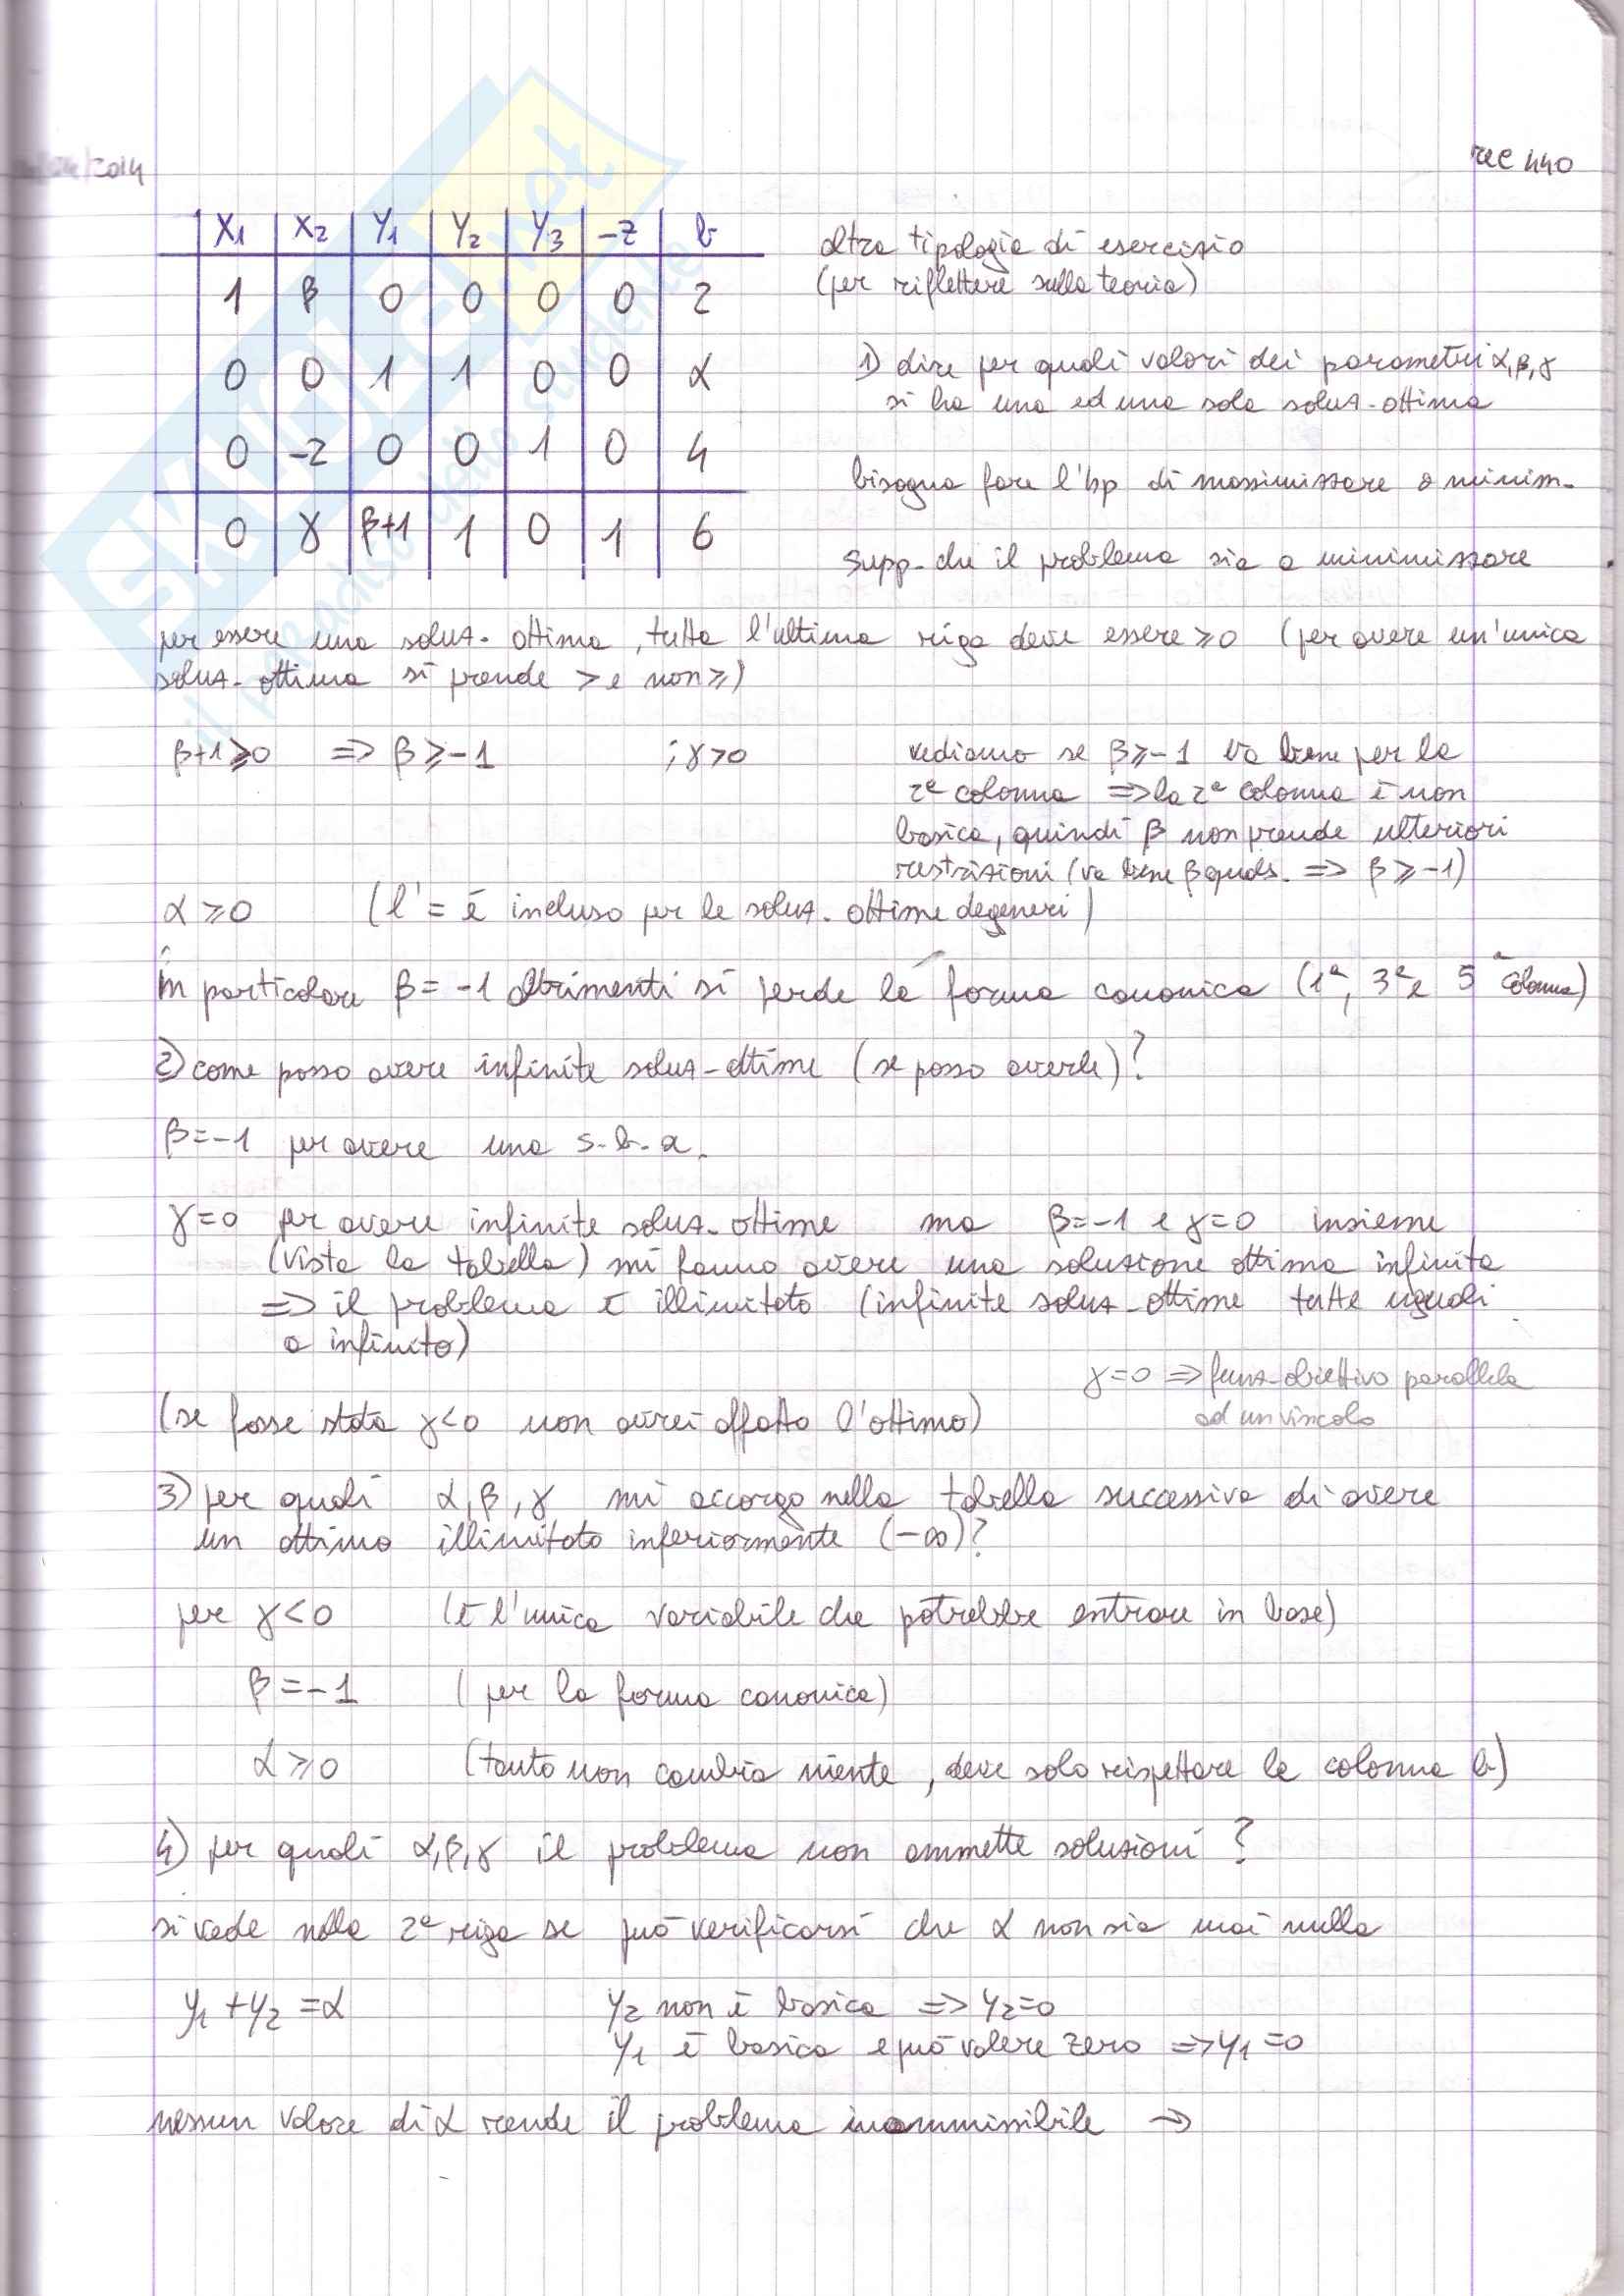 /2014
rec 440
x1 x2 y1 y2 y3 -z b
1 β 0 0 0 0 2
0 0 1 1 0 0 α
0 -2 0 0 1 0 4
0 γ β+1 1 0 1 6
altra tipologia di esercizio
(per riflettere sulla teoria)
1) dire per quali valori dei parametri α, β, γ
si ha una ed una sola soluz. ottima
bisogna fare l'hp di massimizzare o minim.
supp. che il problema sia a minimizzare
per essere una soluz. ottima, tutta l'ultima riga deve essere ≥0 (per avere un'unica
soluz. ottima si prende > e non ≥)
β+1≥0 => β≥-1 ; γ>0
vediamo se β≥-1 va bene per la
2ª colonna => la 2ª colonna è non
basica, quindi β non prende ulteriori
restrizioni (va bene β quals. => β≥-1)
α≥0 (l'= è incluso per le soluz. ottime degeneri)
in particolare β=-1 altrimenti si perde la forma canonica (1ª, 3ª e 5ª colonna)
2) come posso avere infinite soluz. ottime (se posso averle)?
β=-1 per avere una s.b.a.
γ=0 per avere infinite soluz. ottime ma β=-1 e γ=0 insieme
(vista la tabella) mi fanno avere una soluzione ottima infinita
=> il problema è illimitato (infinite soluz. ottime tutte uguali
a infinito)
γ=0 => funz. obiettivo parallela
ad un vincolo
(se fosse stata γ<0 non avrei affatto l'ottimo)
3) per quali α, β, γ mi accorgo nella tabella successiva di avere
un ottimo illimitato inferiormente (-∞)?
per γ<0 (è l'unica variabile che potrebbe entrare in base)
β=-1 (per la forma canonica)
α≥0 (tanto non cambia niente, deve solo rispettare la colonna b)
4) per quali α, β, γ il problema non ammette soluzioni?
si vede nella 2ª riga se può verificarsi che α non sia mai nulla
y1+y2=α y2 non è basica => y2=0
y1 è basica e può valere zero => y1=0
nessun valore di α rende il problema inammissibile →